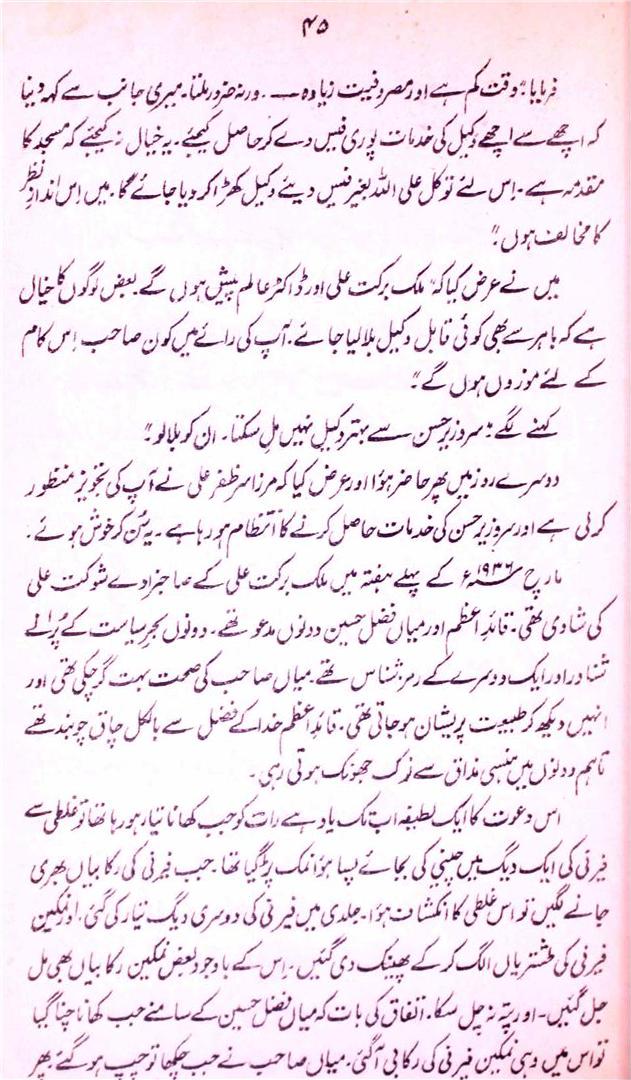 ۴۵
فرمایا: "وقت کم ہے اور مصروفیت زیادہ — ورنہ ضرور ملتا۔ میری جانب سے کہہ دینا
کہ اچھے سے اچھے وکیل کی خدمات پوری فیس دے کر حاصل کیجئے۔ یہ خیال نہ کیجئے کہ مسجد کا
مقدمہ ہے۔ اس لئے توکل علی اللہ بغیر فیس دیئے وکیل کھڑا کر دیا جائے گا۔ میں اس اندازِ نظر
کا مخالف ہوں۔"
میں نے عرض کیا کہ "ملک برکت علی اور ڈاکٹر عالم پیش ہوں گے بعض لوگوں کا خیال
ہے کہ باہر سے بھی کوئی قابل وکیل بلا لیا جائے۔ آپ کی رائے میں کون صاحب اِس کام
کے لئے موزوں ہوں گے۔"
کہنے لگے: "سر وزیر حسن سے بہتر وکیل نہیں مل سکتا۔ ان کو بلا لو۔"
دوسرے روز میں پھر حاضر ہؤا اور عرض کیا کہ مرزا سر ظفر علی نے آپ کی تجویز منظور
کر لی ہے اور سر وزیر حسن کی خدمات حاصل کرنے کا انتظام ہو رہا ہے۔ یہ سُن کر خوش ہوئے۔
مارچ ۱۹۳۶ء کے پہلے ہفتہ میں ملک برکت علی کے صاحبزادے شوکت علی
کی شادی تھی۔ قائدِ اعظم اور میاں فضل حسین دونوں مدعو تھے۔ دونوں بحرِ سیاست کے پُرانے
شناور اور ایک دوسرے کے رمز شناس تھے۔ میاں صاحب کی صحت بہت گر چکی تھی اور
انہیں دیکھ کر طبیعت پریشان ہو جاتی تھی۔ قائدِ اعظم خدا کے فضل سے بالکل چاق چوبند تھے
تاہم دونوں میں ہنسی مذاق سے نوک جھونک ہوتی رہی۔
اس دعوت کا ایک لطیفہ اب تک یاد ہے رات کو جب کھانا تیار ہو رہا تھا تو غلطی سے
فیرنی کی ایک دیگ میں چینی کی بجائے پسا ہؤا نمک پڑ گیا تھا۔ جب فیرنی کی رکابیاں بھری
جانے لگیں تو اس غلطی کا انکشاف ہؤا۔ جلدی میں فیرنی کی دوسری دیگ تیار کی گئی۔ اور نمکین
فیرنی کی طشتریاں الگ کر کے پھینک دی گئیں۔ اِس کے باوجود بعض نمکین رکابیاں بھی مل
جل گئیں۔ اور پتہ نہ چل سکا۔ اتفاق کی بات کہ میاں فضل حسین کے سامنے جب کھانا چنا گیا
تو اس میں وہی نمکین فیرنی کی رکابی آ گئی۔ میاں صاحب نے جب چکھا تو چپ ہو گئے پھر